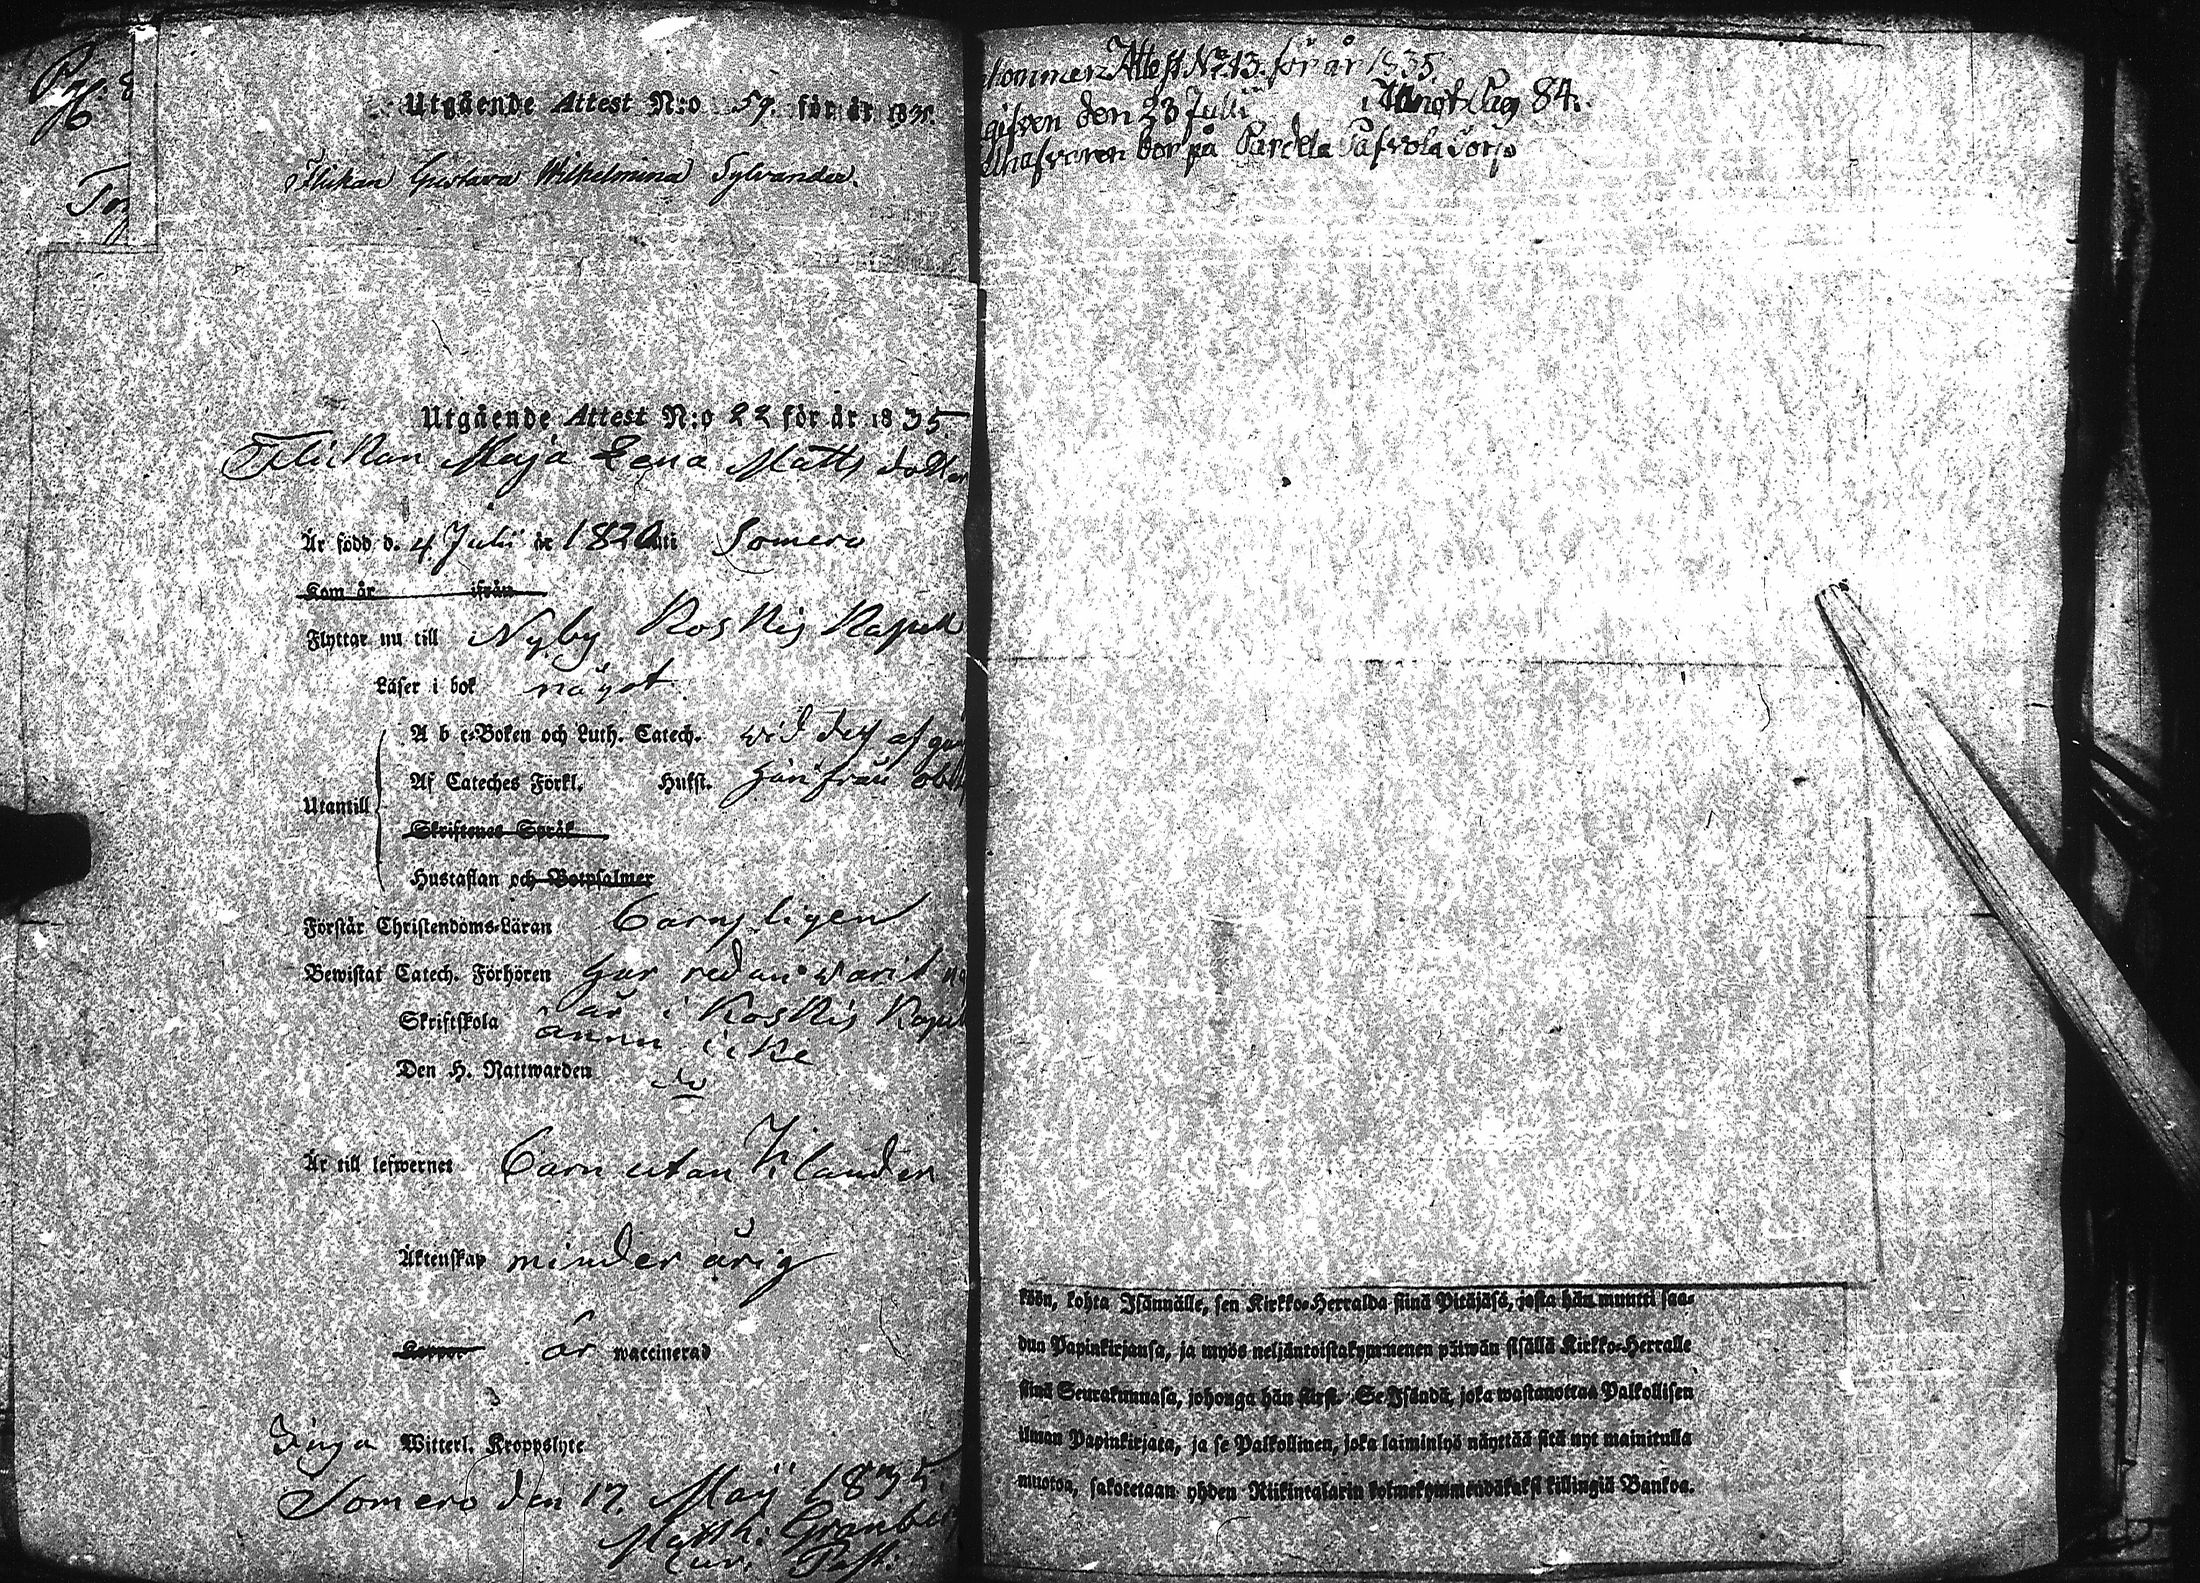 Pag. 8
Utgående Attest N:o 59. för år 1835.
Flickan Gustava Wilhelmina Sylvander.
Utgående Attest N:o 22 för år 1835
Flickan Maja Lena Matts dotter
Är född d. 4 Julii år 1820 uti Somero
Kom år ifrån
Flyttar nu till Nyby Koskis Kapell
Läser i bok något.
A b c-Boken och Luth. Catech.
Af Cateches Förkl. Hufst. härifrån
Utantill
Skriftenes Språk
Hustaflan och Botpsalmer
Förstår Christendoms-Läran barnsligen
Bewistat Catech. Förhören har redan warit
år i Koskis Kapell
Skriftskola ännu icke
Den H. Nattwarden do
Är till lefwernet barn utan klander
Äktenskap minderårig
Koppor är waccinerad
Inga Witterl. Kroppslyte
Somero den 17. Maij 1835.
Matth: Granberg
Past:
Attest No 13. för år 1835.
gifven den 23 Julii Pag 84.
bor på
köön, kohta Isännälle, sen Kirkko-Herralda siinä Pitäjäsä, josta hän muutti saa-
dun Papinkirjansa, ja myös neljäntoistakymmenen päiwän sisällä Kirkko-Herralle
siinä Seurakunnasa, johonga hän siirst. Se Isändä, joka wastanottaa Palkollisen
ilman Papinkirjata, ja se Palkollinen, joka laiminlyö näyttää sitä nyt mainitulla
muotoa, sakotetaan yhden Riikintalarin kolmekymmendäkaksi killingiä Bankoa.